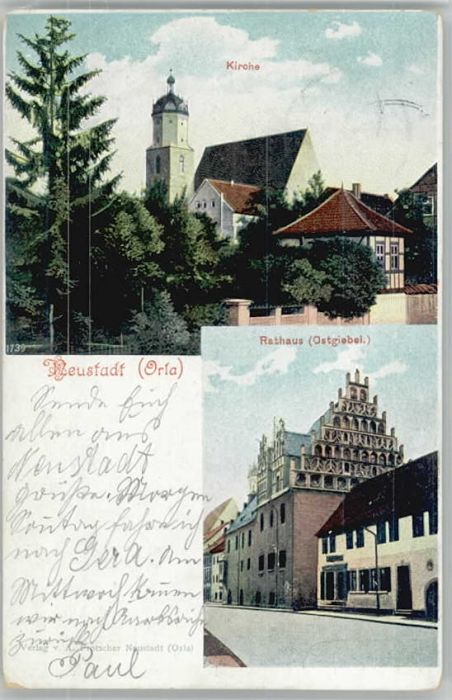 Kirche
1739
Rathaus (Ostgiebel.)
Neustadt (Orla)
Sende Euch
allen aus
Neustadt
Grüße. Morgen
Sonntag fahre ich
nach Gera. Am
Mittwoch
wir nach
zurück
Verlag v. Neustadt (Orla)
Paul